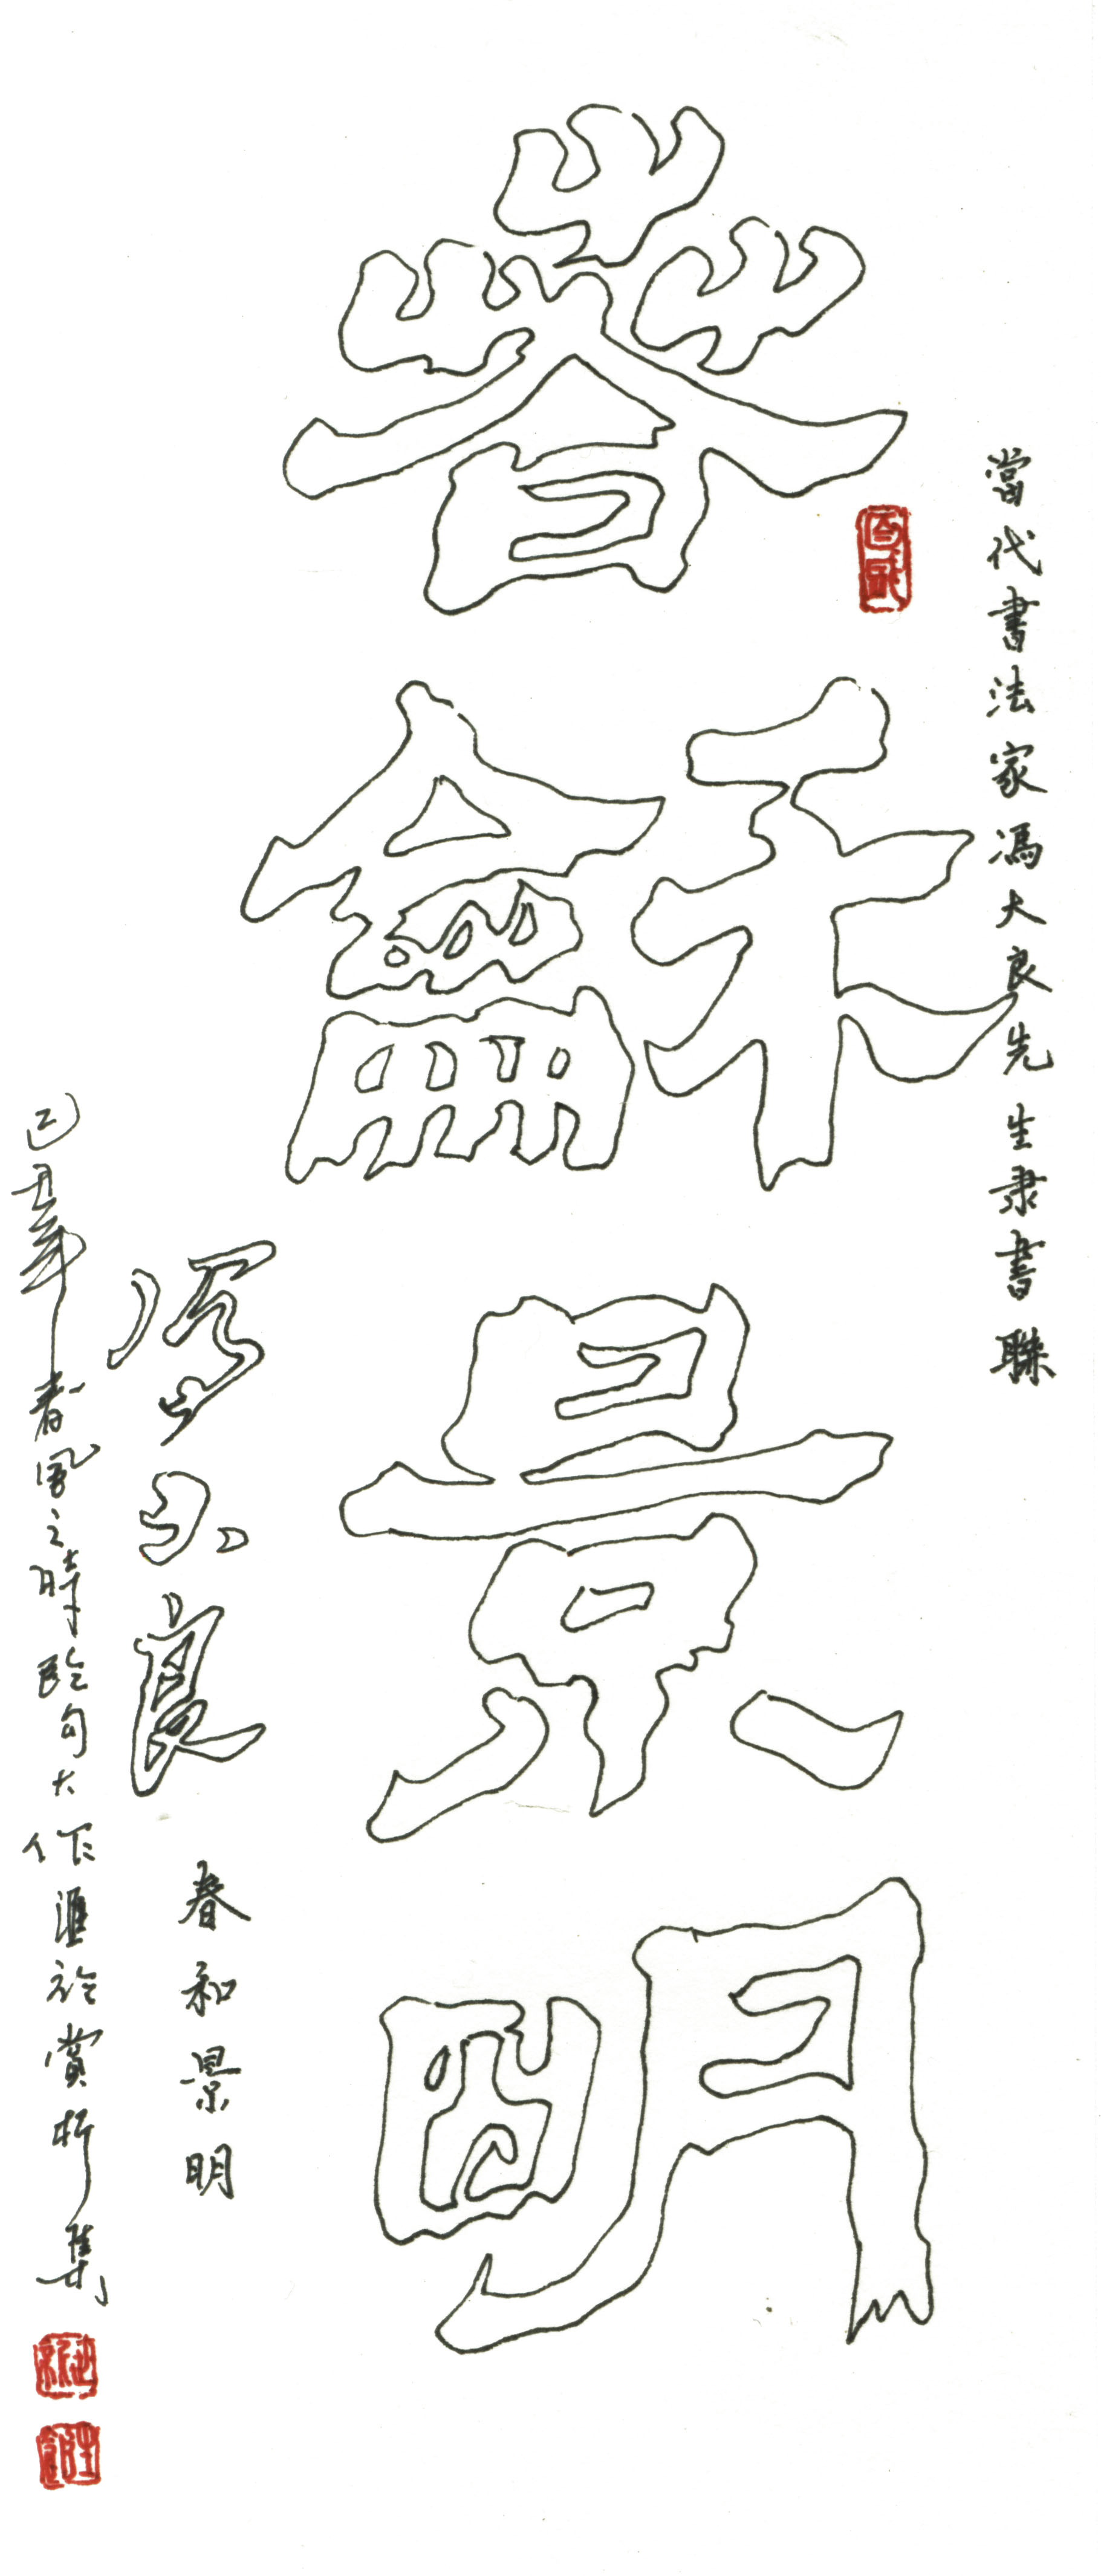 當代書法家馮大良先生隶書聯
萅龢景朙
馮大良
春和景明
己丑年春風之時臨句大作匯於賞析集